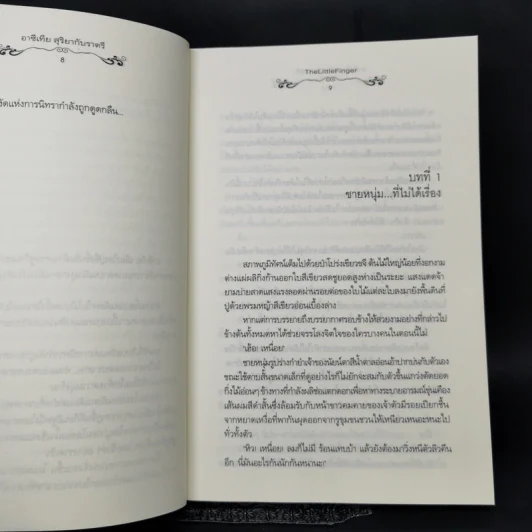 อาซีเทีย สุริยากับราตรี
8
รัดแห่งการนิทรากำลังถูกดูดกลืน...
TheLittleFinger
9
บทที่ 1
ชายหนุ่ม...ที่ไม่ได้เรื่อง
สภาพภูมิทัศน์เต็มไปด้วยป่าโปร่งเขียวขจี ต้นไม้ใหญ่น้อยที่งอกงาม
ต่างแผ่ผลิกิ่งก้านออกใบสีเขียวสดชูยอดสูงห่างเป็นระยะ แสงแดดจ้า
ยามบ่ายสาดแสงแรงลอดผ่านรอยต่อของใบไม้แต่ละใบลงมายังพื้นดินที่
ปูด้วยพรมหญ้าสีเขียวอ่อนเบื้องล่าง
หากแต่การบรรยายถึงบรรยากาศรอบข้างให้สวยงามอย่างที่กล่าวไป
ข้างต้นทั้งหมดหาได้ช่วยจรรโลงจิตใจของใครบางคนในตอนนี้ไม่
'เฮ้อ! เหนื่อย!'
ชายหนุ่มรูปร่างกำยำเจ้าของนัยน์ตาสีน้ำตาลอ่อนอ้าปากบ่นกับตัวเอง
ขณะใช้ดาบสั้นขนาดเล็กที่ดูอย่างไรก็ไม่ยักจะสมกับตัวขึ้นแกว่งตัดยอด
กิ่งไม้อ่อนๆ ข้างทางที่กำลังผลิช่อแตกดอกเพื่อหาทางระบายอารมณ์ขุ่นเคือง
เส้นผมสีดำสั้นซึ่งล้อมรับกับหน้าขาวคมคายของเจ้าตัวมีรอยเปียกชื้น
จากหยาดเหงื่อที่พากันผุดออกจากรูขุมขนชวนให้เหนียวเหนอะหนะไป
ทั่วทั้งตัว
'หิว! เหนื่อย! ลมก็ไม่มี ร้อนแทบบ้า แล้วยังต้องมาวิ่งหนีตัวลิวคืน
อีก นี่มันอะไรกันนักกันหนานะ!'